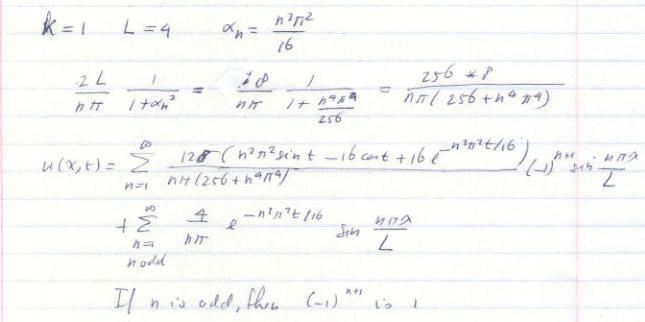 k = 1 L = 4 αn = n²π²/16
2L/nπ 1/(1+αn²) = 8/nπ 1/(1 + n⁴π⁴/256) = 256 * 8/(nπ(256+n⁴π⁴))
u(x,t) = ∑ n=1 ∞ 128(n²π² sin t − 16 cos t + 16 e^(−n²π²t/16))/(nπ(256+n⁴π⁴)) (−1)^(n+1) sin nπx/L
+ ∑ n=1 n odd ∞ 4/nπ e^(−n²π²t/16) sin nπx/L
If n is odd, then (−1)^(n+1) is 1